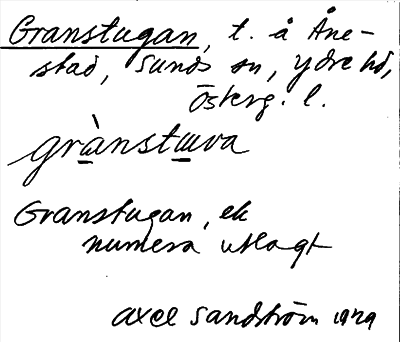 Granstugan, t. å Åne-
stad, Sunds sn, Ydre hd,
Österg. l.
grànstɯva
Granstugan, ek
numera utlagt
Axel Sandström 1929